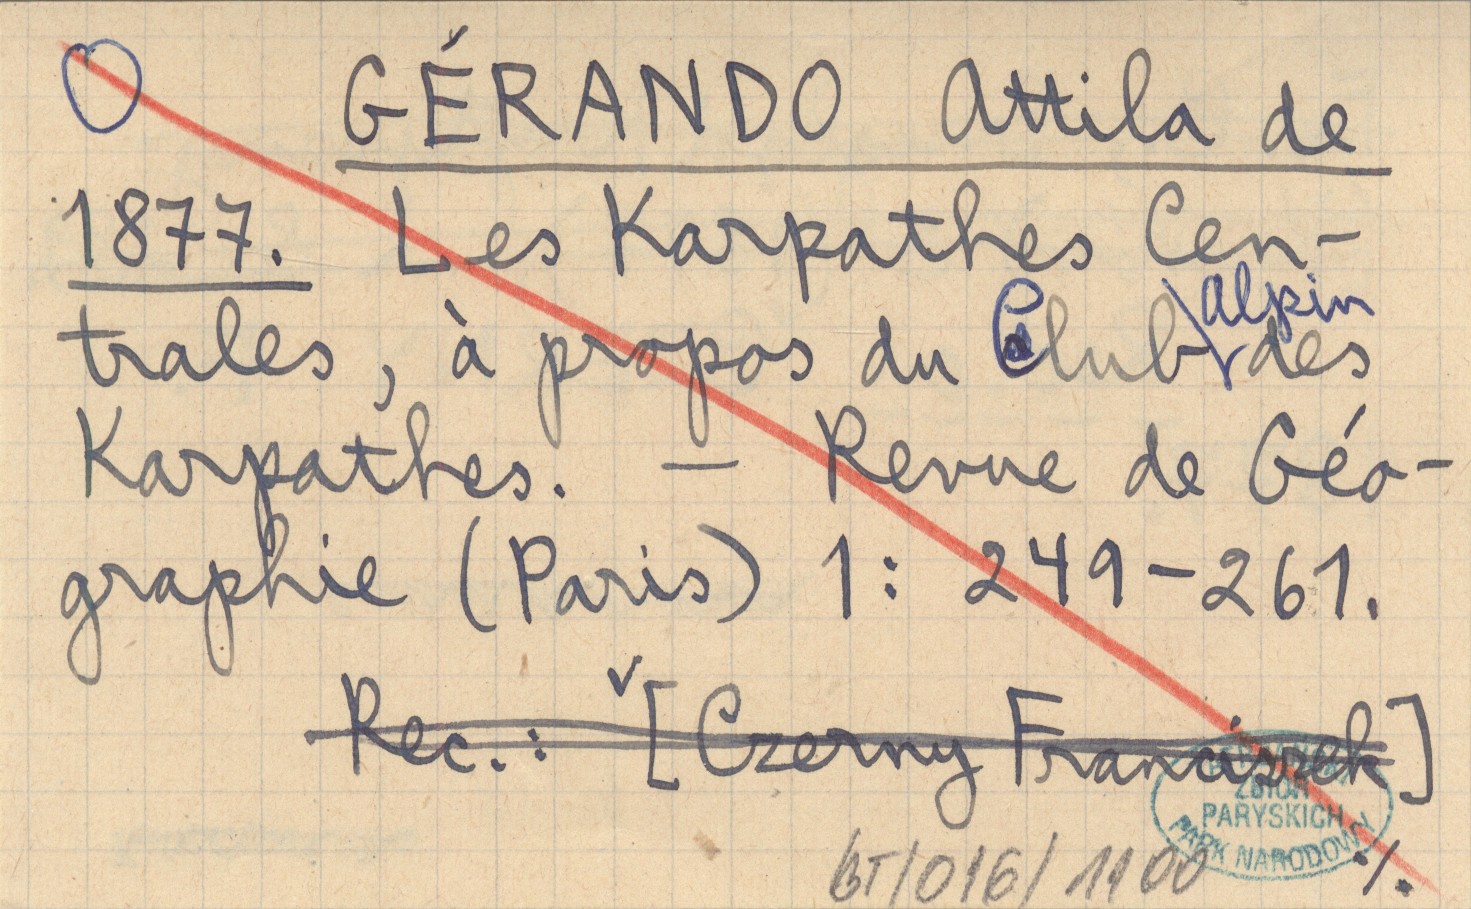 GÉRANDO Attila de
1877. Les Karpathes Cen-
trales, à propos du Club alpin des
Karpathes. — Revue de Géo-
graphie (Paris) 1: 249-261.
Rec.: [Czerny Franciszek]
ZBIÓR
PARYSKICH
PARK NARODOWY
BT/016/1100
./.